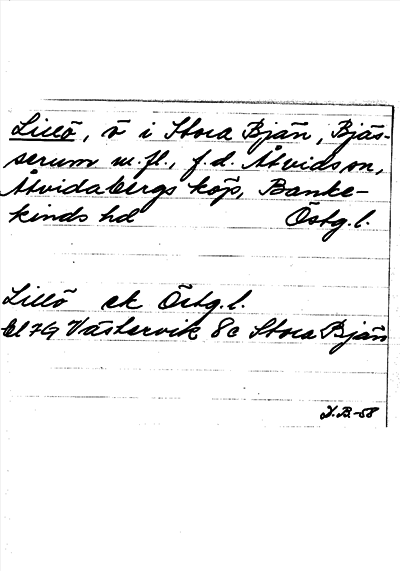 Lillö, ö i Stora Bjän, Bjäs-
serum m.fl., f.d. Åtvids sn,
Åtvidabergs köp, Banke-
kinds hd Östg.l.
Lillö ek Östg.l.
Bl 7G Västervik 8c Stora Bjän
I.B.-58